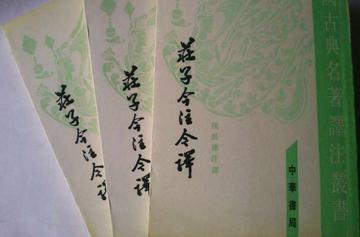 莊子今注今譯
莊子今注今譯
莊子今注今譯
陳鼓應注譯
中華書局
國古典名著譯注叢書